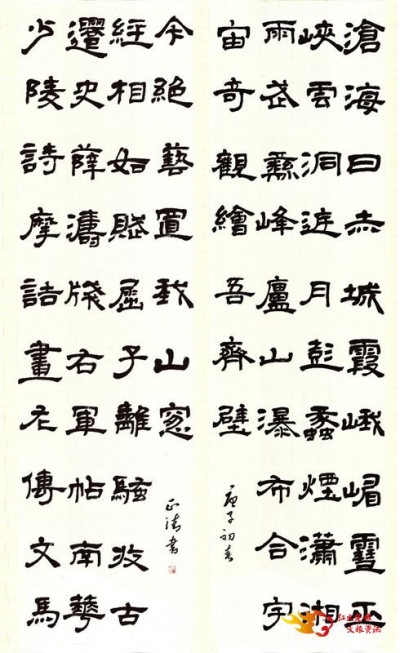 滄海日赤城霞峨嵋雪巫
峽雲洞庭月彭蠡煙瀟湘
雨武彝峰廬山瀑布合宇
宙奇觀繪吾齊壁
庚子初春
少陵詩摩詰畫左傳文馬
遷史薛濤牋右軍帖南華
經相如賦屈子離騷收古
今絕藝置我山窓
書